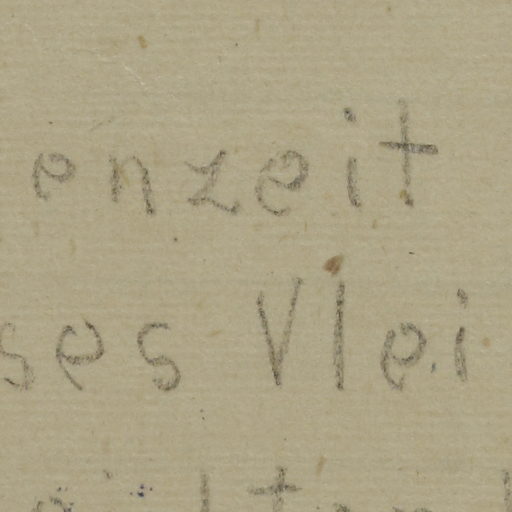 enzeit
ses Vlei